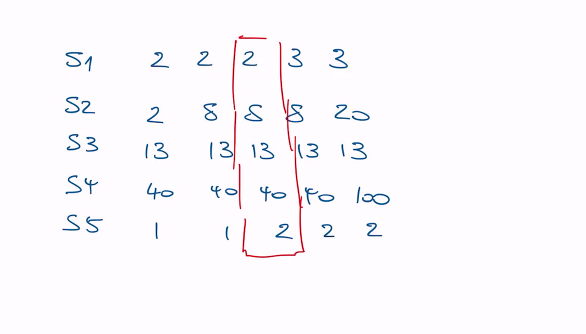 S1 2 2 2 3 3
S2 2 8 8 8 20
S3 13 13 13 13 13
S4 40 40 40 40 100
S5 1 1 2 2 2